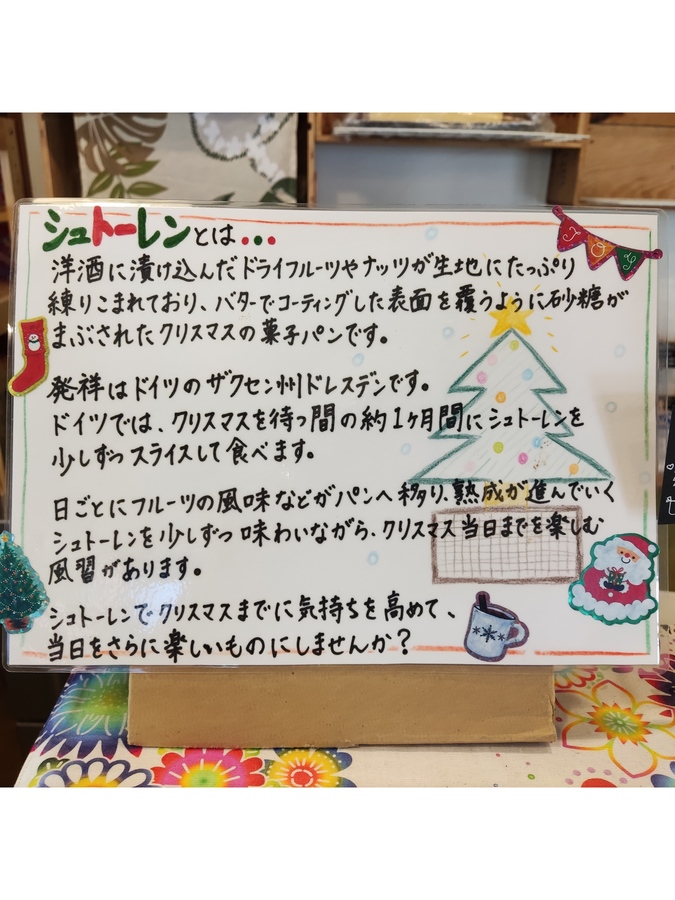 シュトーレンとは...
洋酒に漬け込んだドライフルーツやナッツが生地にたっぷり
練りこまれており、バターでコーティングした表面を覆うように砂糖が
まぶされたクリスマスの菓子パンです。
発祥はドイツのザクセン州ドレスデンです。
ドイツでは、クリスマスを待つ間の約1ヶ月間にシュトーレンを
少しずつスライスして食べます。
日ごとにフルーツの風味などがパンへ移り、熟成が進んでいく
シュトーレンを少しずつ味わいながら、クリスマス当日までを楽しむ
風習があります。
シュトーレンでクリスマスまでに気持ちを高めて、
当日をさらに楽しいものにしませんか？
JOY